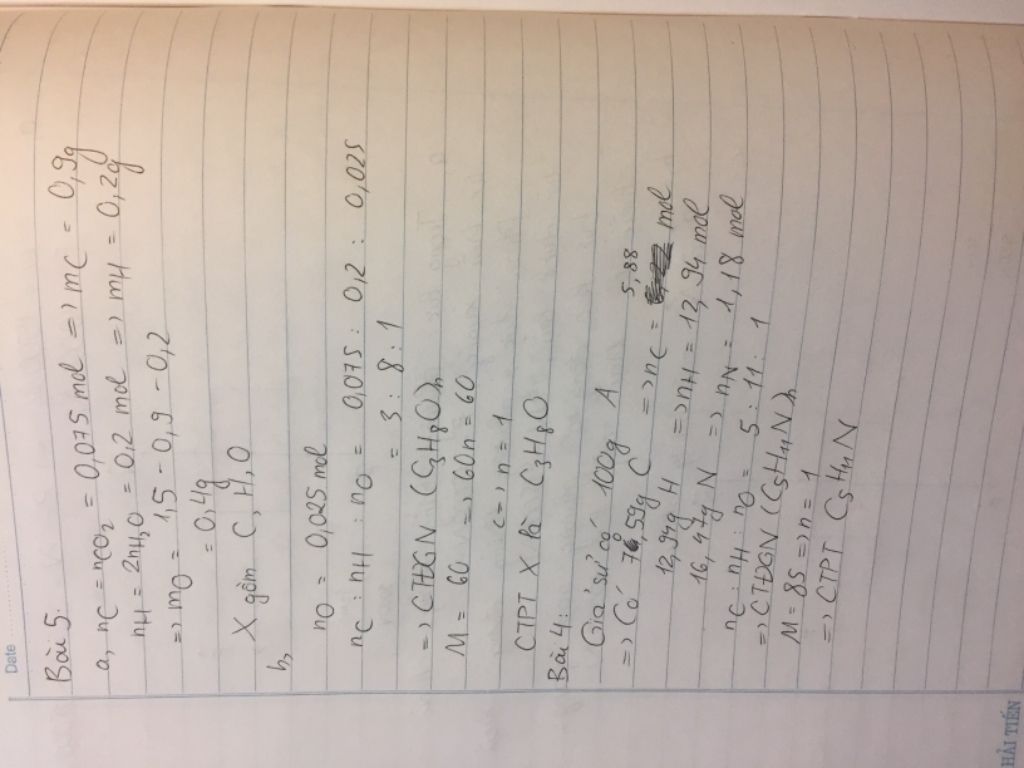 Date
Bài 5.
a, nC = nCO2 = 0,075 mol => mC = 0,9g
nH = 2nH2O = 0,2 mol => mH = 0,2g
=> mO = 1,5 - 0,9 - 0,2
= 0,4g
X gồm C, H, O
b,
nO = 0,025 mol
nC : nH : nO = 0,075 : 0,2 : 0,025
= 3 : 8 : 1
=> CTĐGN (C3H8O)n
M = 60 => 60n = 60
<=> n = 1
CTPT X là C3H8O
Bài 4:
Giả sử có 100g A
=> Có 70,59g C => nC = 5,88 mol
12,94g H => nH = 12,94 mol
16,47g N => nN = 1,18 mol
nC : nH : nO = 5 : 11 : 1
=> CTĐGN (C5H11N)n
M = 85 => n = 1
=> CTPT C5H11N
HẢI TIẾN